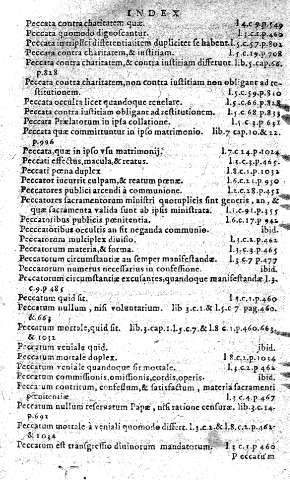 INDEX
Peccata contra charitatem quæ. l.4.c.9.p.549
Peccata quomodo dignoscantur. l.3.c.2.p.460
Peccata multiplici differentia item dupliciter se habent. l.5.c.57.p.802
Peccata contra charitatem, & iustitiam. l.5.c.19.p.708
Peccata contra charitatem, & contra iustitiam differunt. lib.5.cap.58.
p.828
Peccata contra charitatem, non contra iustitiam non obligant ad re-
stitutionem. l.5.c.59.p.810
Peccata occulta licet quandoque reuelare. l.5.c.66.p.828
Peccata contra iustitiam obligant ad restitutionem. l.5.c.68.p.833
Peccata Prælatorum in ipsa collatione. l.1.c.3.p.652
Peccata quæ committuntur in ipso matrimonio. lib.7 cap.10.& 22.
p.996
Peccata, quæ in ipso vsu matrimonij. l.7.c.24.p.1024
Peccati effectus, macula, & reatus. l.3.c.3.p.465.
Peccati pœna duplex l.8.c.1.p.1032
Peccator incurrit culpam, & reatum pœnæ. l.6.c.21.p.950
Peccatores publici arcendi à communione. l.2.c.28.p.452
Peccatores sacramentorum ministri quotuplicis sint generis, an, &
quæ sacramenta valida sunt ab ipsis ministrata. l.1.c.91.p.355
Peccatoribus publicis pœnitentia. l.6.c.17.p.942
Peccatoribus occultis an sit neganda communio. ibid.
Peccatorum multiplex diuisio. l.3.c.2.p.462
Peccatorum materia, & forma. l.3.c.3.p.465
Peccatorum circumstantiæ an semper manifestandæ. l.3.c.7.p.477
Peccatorum numerus necessarius in confessione. ibid.
Peccatorum circumstantiæ excusantes, quandoque manifestandæ l.3.
c.9.p.485
Peccatum quid sit. l.3.c.1.p.460
Peccatum nullum, nisi voluntarium. lib 3.c.1.& l.5 c.7. pag.460.
& 663
Peccatum mortale, quid sit. lib.3.cap.1.l.5.c.7.& l.8 c.1.p.460.663.
& 1032
Peccatum veniale quid. ibid.
Peccatum mortale duplex. l 8.c.2.p.1034
Peccatum veniale quandoque sit mortale. l.3.c.2.p.462
Peccatum commissionis, omissionis, cordis, operis. ibid.
Peccatum contritum, confessum, & satisfactum, materia sacramenti
pœnitentiæ l.3.c.4.p.467
Peccatum nullum reseruatum Papæ, nisi ratione censuræ. lib.3.c.14.
p.692
Peccatum mortale à veniali quomodo differt. l.3.c.2.& l.8.c.2.p.462.
& 1034
Peccatum est transgressio diuinorum mandatorum. l.3.c.1.p.460
Peccatum